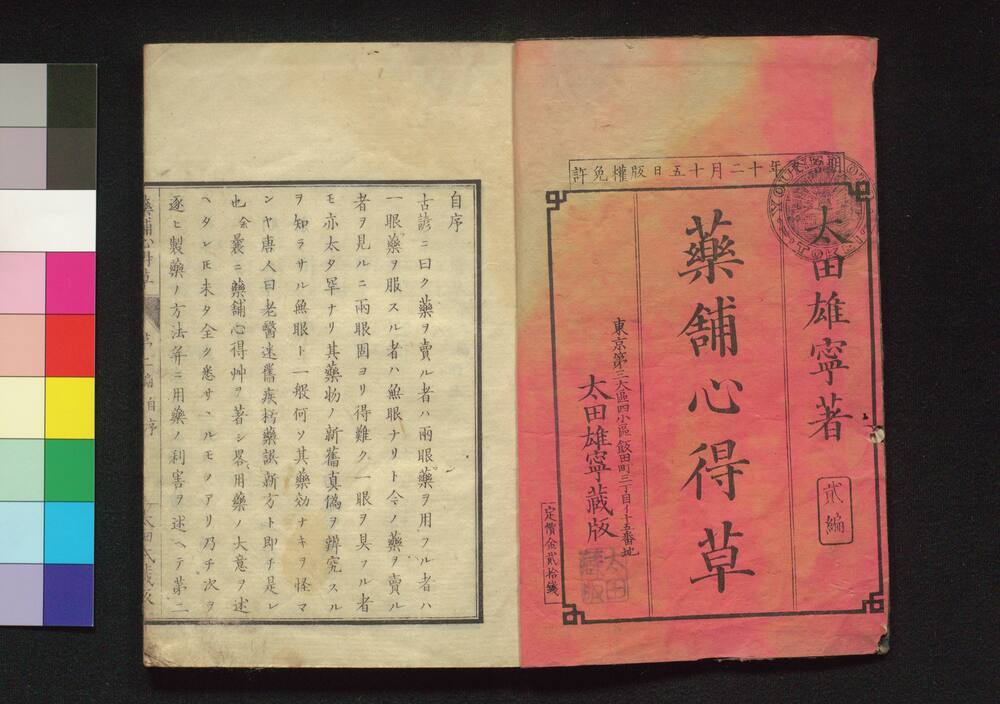 許免權版日五十月二十年
太田雄寧著
貳編
藥舖心得草
東京第三大區四小區飯田町三丁目千五番地
太田雄寧藏版
定價金貳拾錢
太田藏版
自序
古諺ニ曰ク藥ヲ賣ル者ハ兩眼藥ヲ用フル者ハ
一眼藥ヲ服スル者ハ無眼ナリト今ノ藥ヲ賣ル
者ヲ見ルニ兩眼固ヨリ得難ク一眼ヲ具フル者
モ亦太タ罕ナリ其藥物ノ新舊真偽ヲ辨究スル
ヲ知ラサル無眼ト一般何ソ其藥効ナキヲ怪マ
ンヤ唐人曰老醫迷舊疾朽藥誤新方ト即チ是レ
也余曩ニ藥舖心得艸ヲ著シ畧用藥ノ大意ヲ述
ヘタレ𪜈未タ全ク悉サヽルモノアリ乃チ次ヲ
逐ヒ製藥ノ方法并ニ用藥ノ利害ヲ述ヘテ第二
藥舖心得草 第二編自序 太田氏藏版